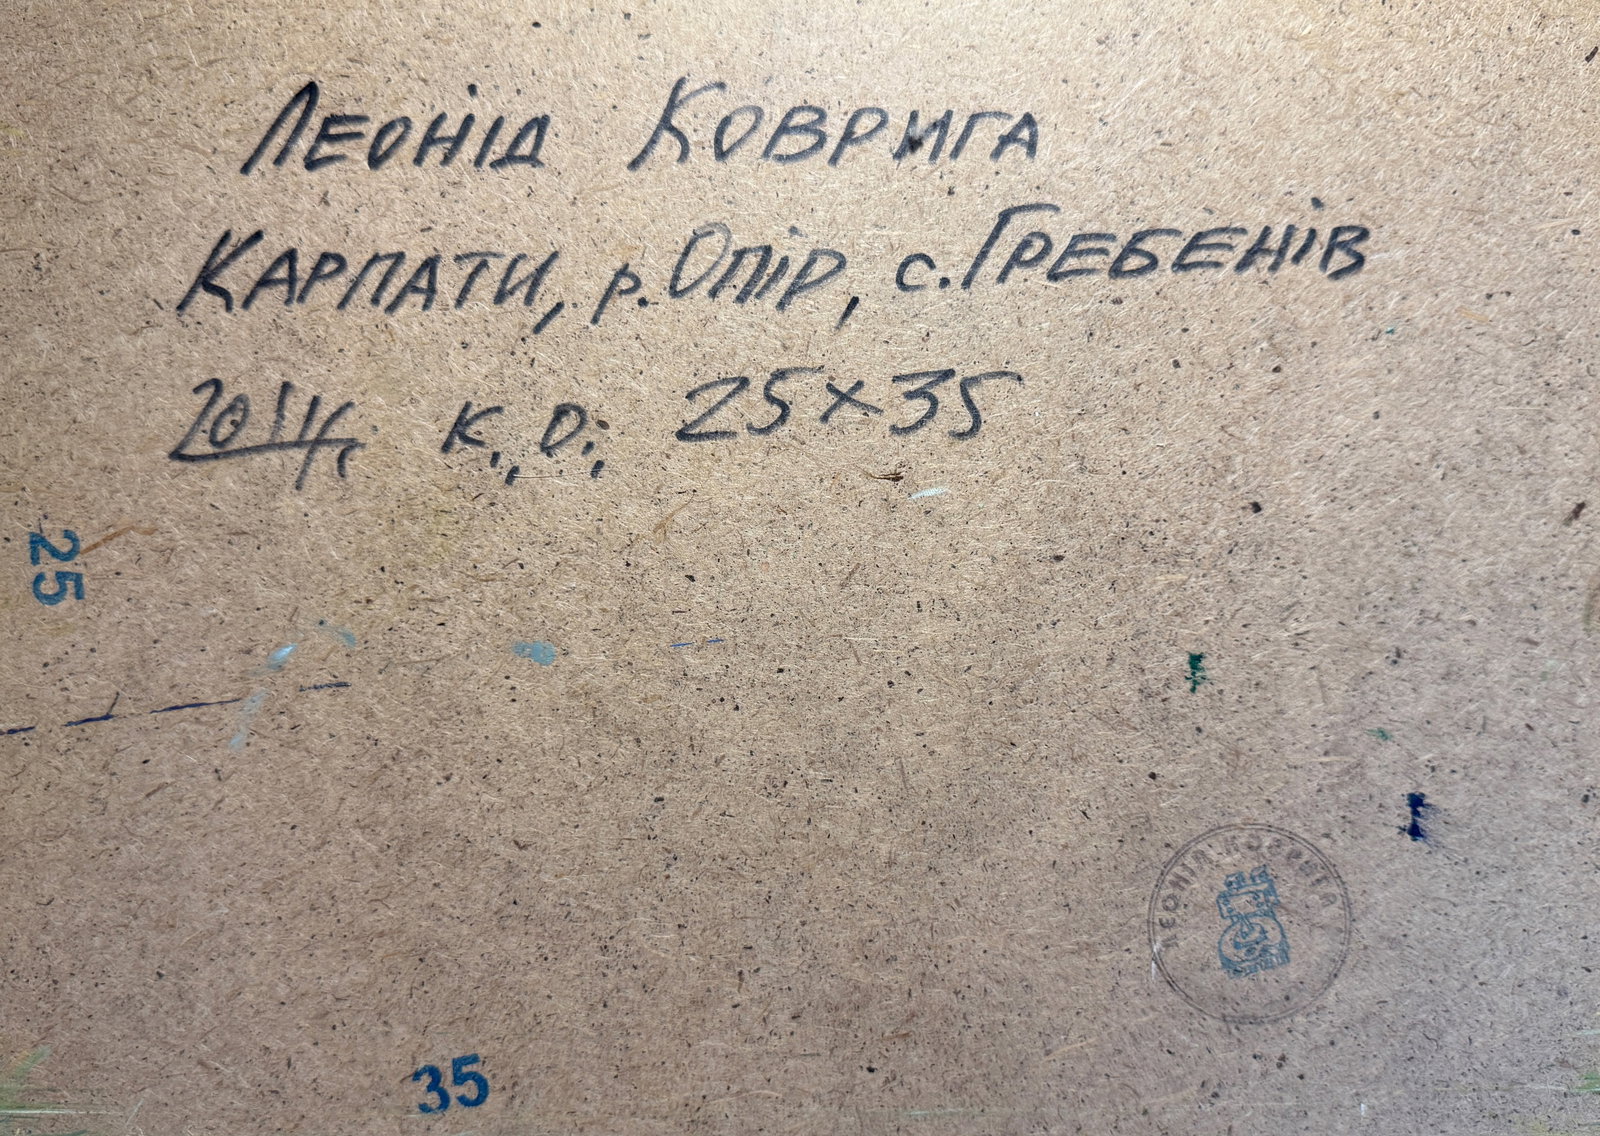 Леонід Коврига
Карпати, р. Опір, с. Гребенів
2014, к., о., 25×35
25
35
ЛЕОНІД КОВРИГА